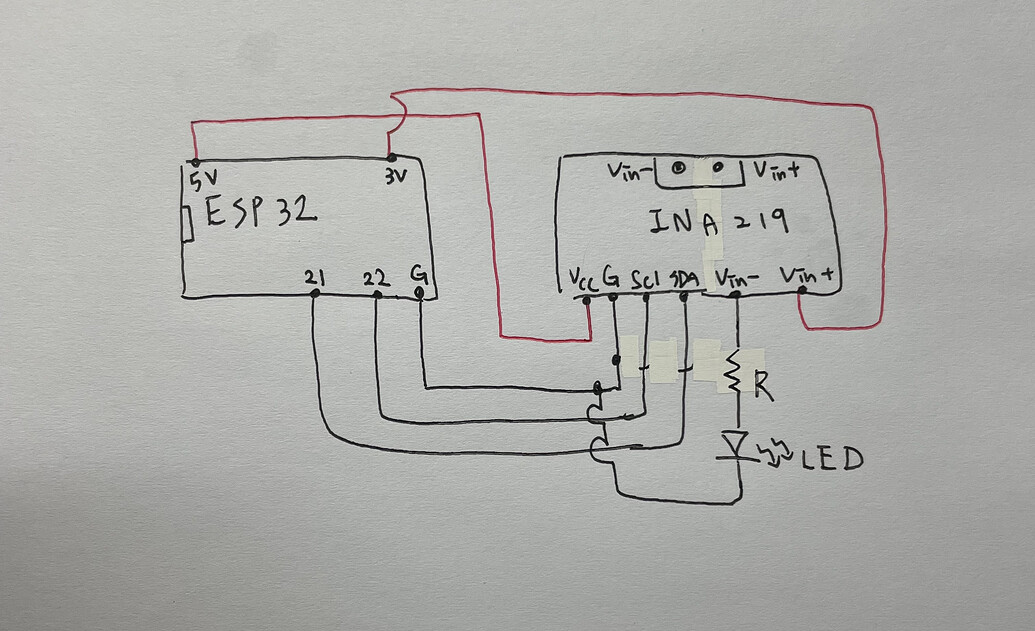 5V
3V
ESP 32
21 22 G
Vin- Vin+
INA 219
Vcc G Scl SDA Vin- Vin+
R
LED